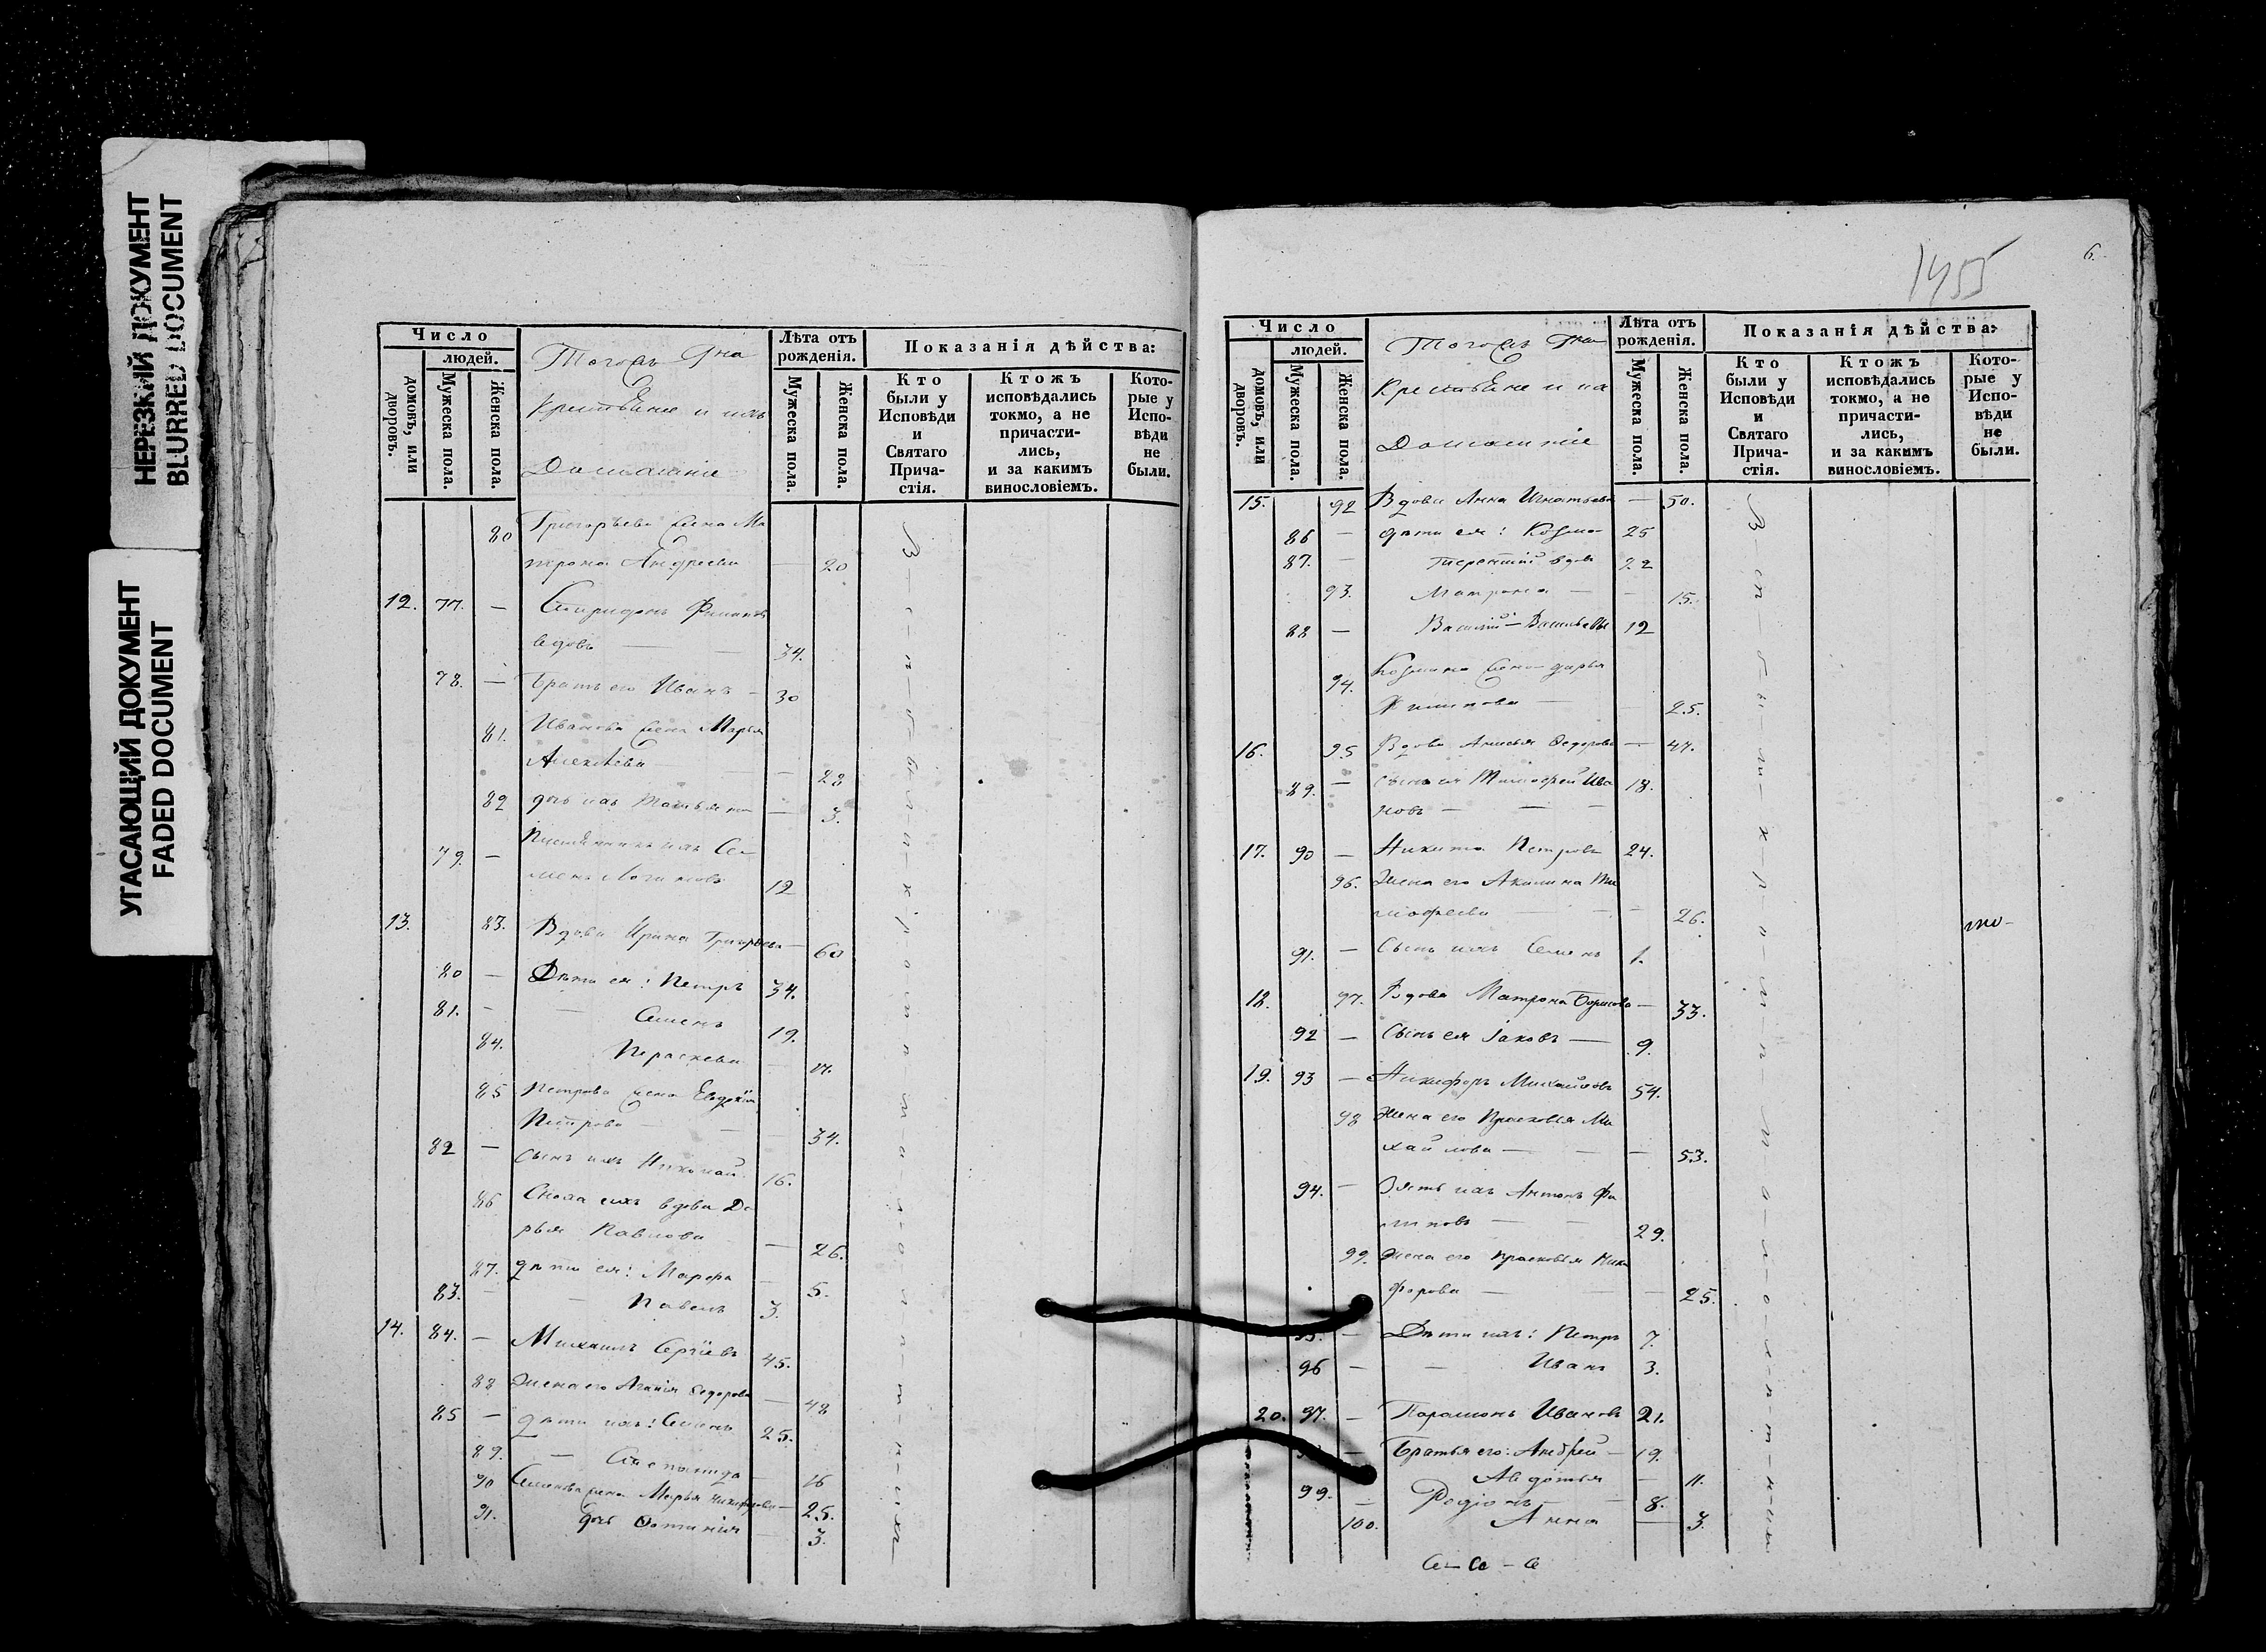 НЕРЕЗКИЙ ДОКУМЕНТ
BLURRED DOCUMENT
УГАСАЮЩИЙ ДОКУМЕНТ
FADED DOCUMENT
Число
людей.
домовъ, или дворовъ.
Мужеска пола.
Женска пола.
Тогожъ Гна
Крестьяне и ихъ
Домашніе
Лѣта отъ рожденія.
Мужеска пола.
Женска пола.
Показанія дѣйства:
Кто были у Исповѣди и Святаго Прича-стія.
Ктожъ исповѣдались токмо, а не причасти-лись, и за какимъ винословіемъ.
Кото-рые у Испо-вѣди не были.
80 Григорьева жена Ма
трона Андреева — 20
12. 77. — Спиридонъ Филипов
вдовъ — — 34.
78. — Братъ его Иванъ — 30
81. Иванова жена Марья
Алексѣева — — 28
82 дочь ихъ Татьяна — 3.
79. — Племянникъ ихъ Се
менъ Логиновъ 12
13. 83. Вдова Ирина Григорьева — 60
80 — Дѣти ея: Петръ 34.
81. — — Семенъ 19.
84. Параскева — 17.
85 Петрова жена Евдокія
Петрова — — 34.
82 — Сынъ ихъ Николай 16.
86 Сноха ихъ вдова Да
рья Павлова — 26.
87. дѣти ея: Марфа — 5.
83. — — Павелъ 3.
14. 84. — Михаилъ Сергѣевъ 45.
88 Жена его Агафія Федорова — 48
85 — дѣти ихъ: Семенъ 25.
89. — Степанида — 16
90 Семенова жена Марья Никифорова — 25.
91. дочь Фотинія — 3.
В-с-п-б-ы-л-и-к-р-о-м-п-м-а-л-о-л-п-т-н-ихъ
1455
6.
Число
людей.
домовъ, или дворовъ.
Мужеска пола
Женска пола.
Тогожъ Гна
Крестьяне и их
Домашніе
Лѣта отъ рожденія.
Мужеска пола.
Женска пола.
Показанія дѣйства:
Кто были у Исповѣди и Святаго Прича-стія.
Ктожъ исповѣдались токмо, а не причасти-лись, и за какимъ винословіемъ.
Кото-рые у Испо-вѣди не были.
15. 92 Вдова Анна Игнатьева — 50.
86 — дѣти ея: Козма 25
87. — Терентій вдов 22
93. Матрона — — 15.
88 — Василій — Васильевы 12
94. Козмина жена Дарья
Филипова — — 25.
16. 95 Вдова Анисья Федорова — 47.
89. — Сынъ ея Тимофей Ива 18.
новъ — — —
17. 90 — Никита Петровъ 24.
96. Жена его Акилина Ти
мофеева — — — 26.
91. — Сынъ ихъ Семенъ 1.
18. 97. Вдова Матрона Борисова — 33.
92 — Сынъ ея Іаковъ — 9.
19. 93 — Никифоръ Михайловъ 54.
98 Жена его Прасковья Ми
хайлова — — — 53.
94. — Зять ихъ Антонъ Фи
липовъ — — 29.
99. Жена его Прасковья Ники
форова — — — 25.
95. — Дѣти ихъ: Петръ 7.
96 — — Иванъ 3.
20. 97. — Парамонъ Ивановъ 21.
— Братья его: Андрей — 19.
Авдотья — 11.
99. — Родіонъ — 8.
100. Анна — 3.